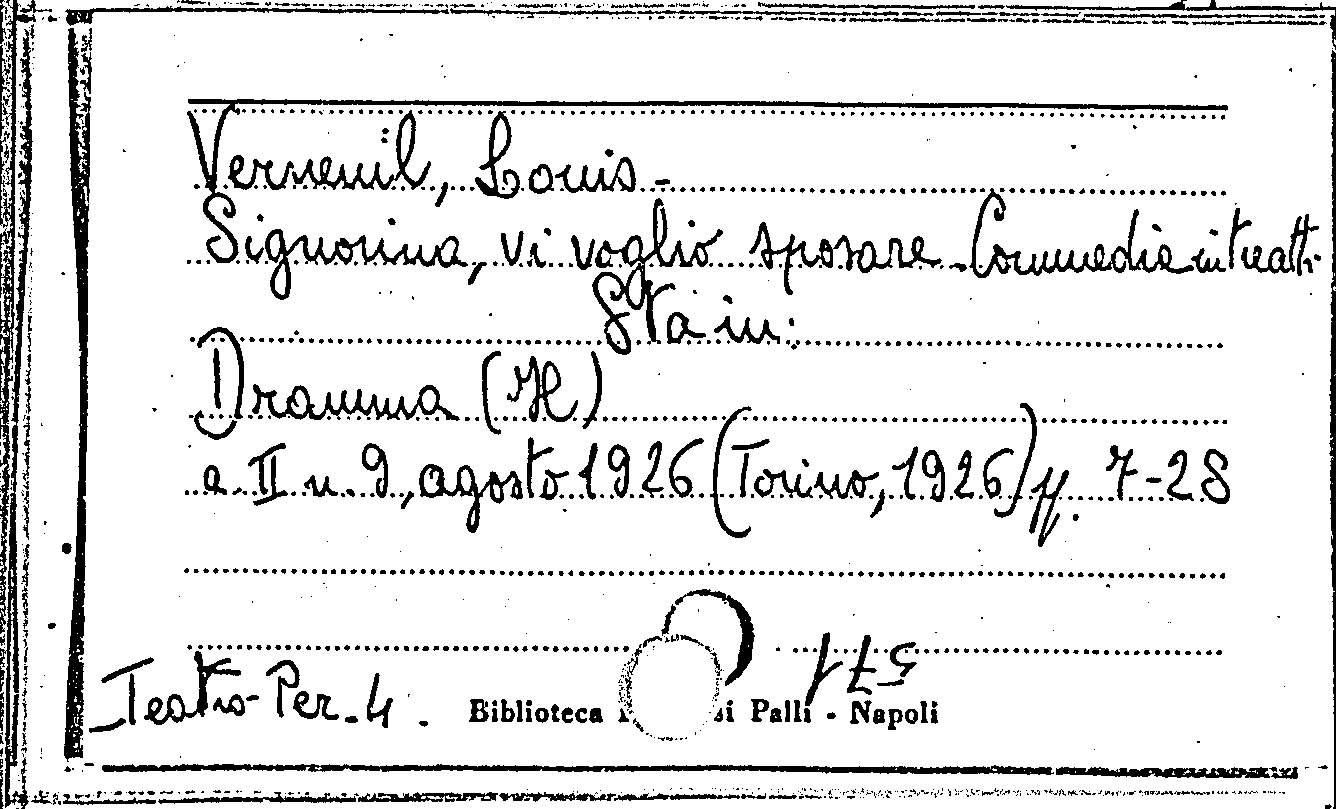 Verneuil, Louis -
Signorina, vi voglio sposare. Commedia in tre atti.
Sta in:
Dramma (Il)
a. II n. 9, agosto 1926 (Torino, 1926) pp. 7-28
Teatro-Per. 4.
Biblioteca si Palli - Napoli